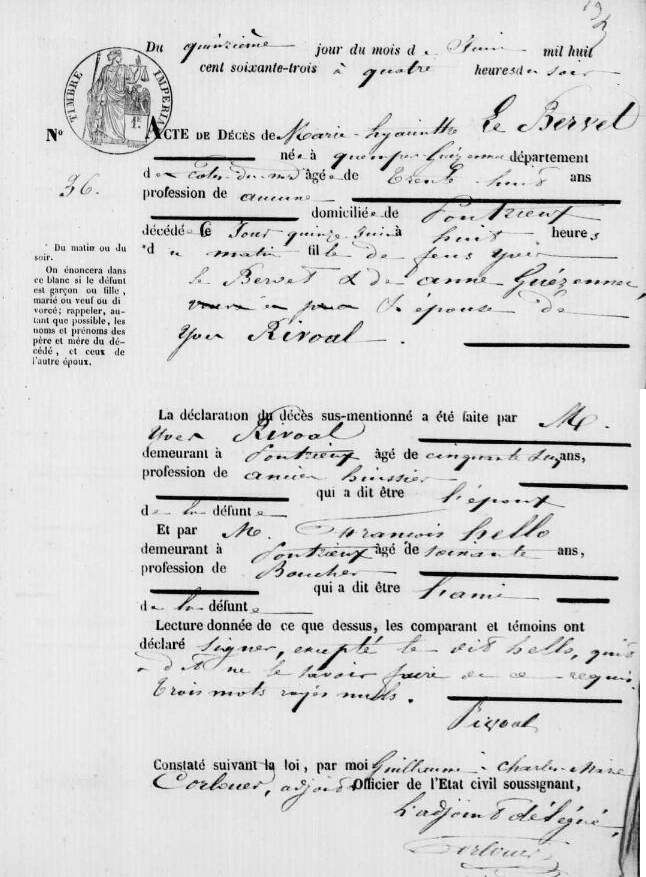 Du quinzième jour du mois de Juin mil huit
cent soixante-trois à quatre heures du soir
TIMBRE IMPERIAL
1 F.
No
36.
ACTE DE DÉCÈS de Marie-hyacinthe Le Bervet
née à quemper-Guézennec département
des Côtes-du-nord âgée de trente huit ans
profession de aucune
domiciliée de Pontrieux
décédée Ce Jour quinze Juin à huit heures
du matin fille de feus Yves
le Bervet & de anne Guézennec,
épouse de
Yves Rivoal.
Du matin ou du
soir.
On énoncera dans
ce blanc si le défunt
est garçon ou fille,
marié ou veuf ou di
vorcé; rappeler, au-
tant que possible, les
noms et prénoms des
père et mère du dé-
cédé, et ceux de
l'autre époux.
La déclaration du décès sus-mentionné a été faite par M.
Yves Rivoal
demeurant à Pontrieux âgé de cinquante ans,
profession de ancien huissier
qui a dit être l'époux
de la défunte
Et par M. François hello
demeurant à Pontrieux âgé de soixante ans,
profession de Boucher
qui a dit être l'ami
de la défunte
Lecture donnée de ce que dessus, les comparant et témoins ont
déclaré signer, excepté le dit hello, qui
a dit ne le savoir faire de ce requis
trois mots rayés nuls.
Rivoal
Constaté suivant la loi, par moi Guillaume-Charles-Marie
Corlouer, adjoint Officier de l'Etat civil soussignant,
L'adjoint délégué,
Corlouer